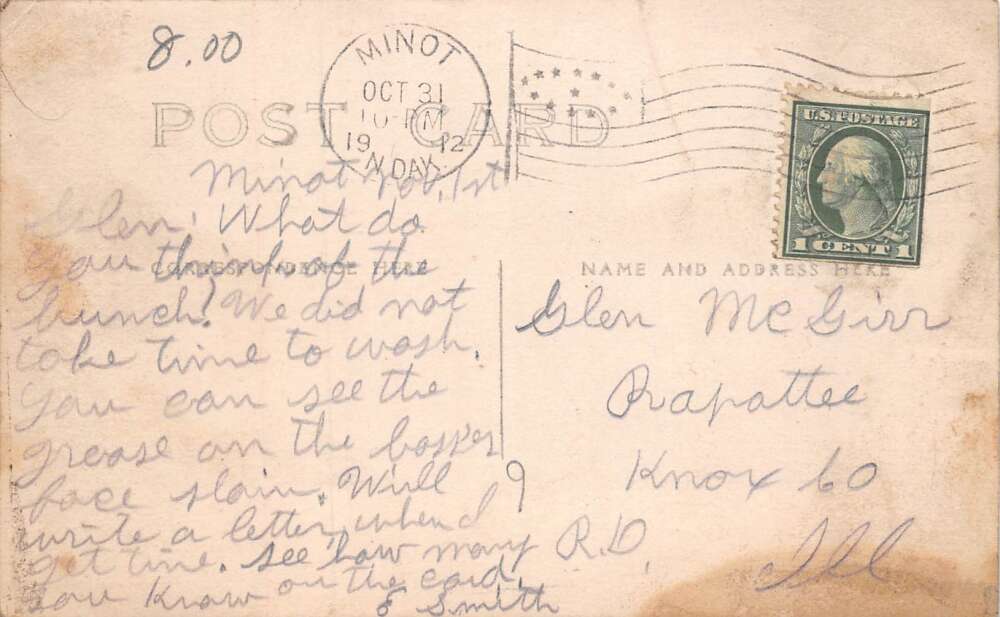 8.00
MINOT
OCT 31
10-PM
19 12
N.DAK.
POST CARD
U.S. POSTAGE
1 CENT 1
Minot Nov. 1st
Glen, What do
you think of the
bunch? We did not
take time to wash.
You can see the
grease on the
face plain. Will
write a letter when I
get time. See how many
you know on the card.
E Smith
CORRESPONDENCE HERE
NAME AND ADDRESS HERE
Glen McGirr
Rapattee
Knox Co
9
R.D.
Ill